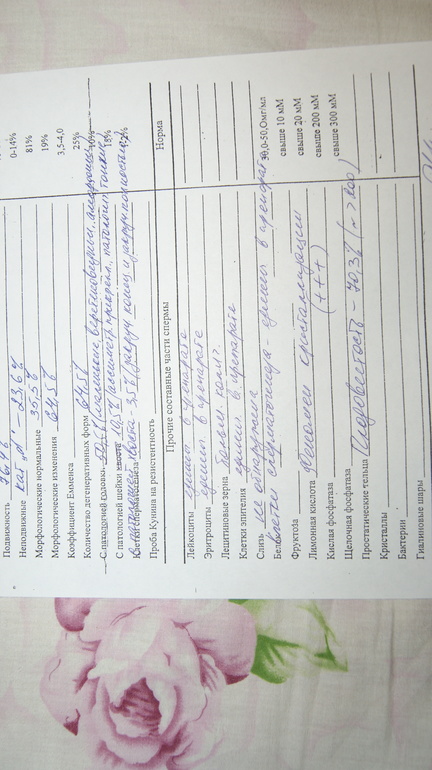 Подвижность 76,4 %
Неподвижные кат „А" – 23,6 % 0-14%
Морфологические нормальные 35,5 % 81%
Морфологические изменения 64,5 % 19%
Коэффициент Екменса 3,5-4,0
Количество дегенеративных форм 64,5 % 25%
С патологией головки (маленькие, веретеновидн., аморфные) 10%
С патологией шейки хвоста 13%
2%
Проба Кунина на резистентность Норма
Прочие составные части спермы
Лейкоциты един. в препарате
Эритроциты един. в препарате
Лецитиновые зерна больш. колич.
Клетки эпителия един. в препарате
Слизь не обнаружена
Белок 30,0-50,0мг/мл
клетки сперматогенеза – един. в препарате
Фруктоза свыше 10 мМ
Лимонная кислота феномен кристаллизации свыше 20 мМ
Кислая фосфатаза (+++) свыше 200 мМ
Щелочная фосфатаза свыше 300 мМ
Простатические тельца
Кристаллы
Бактерии
Гиалиновые шары